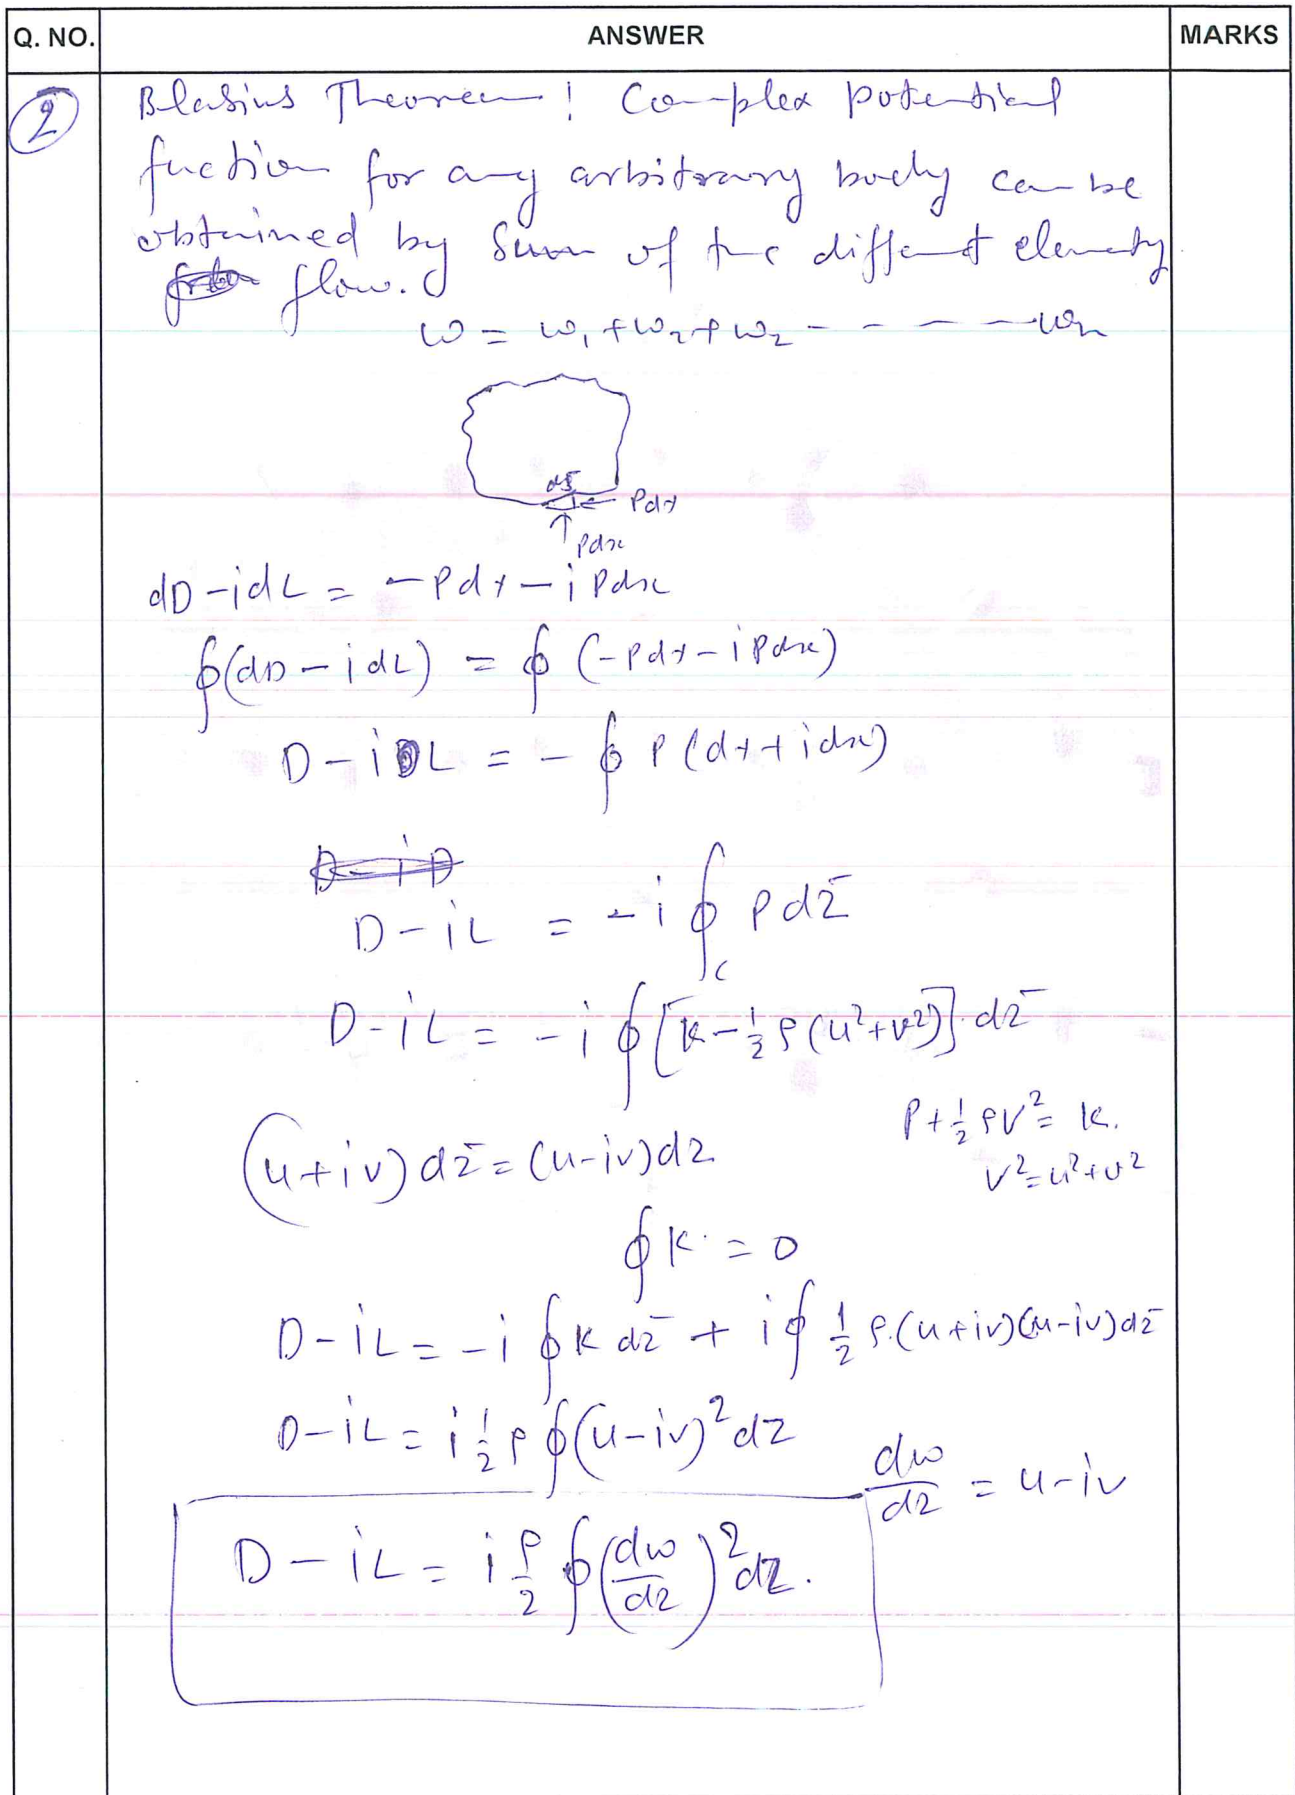 Q. NO. ANSWER MARKS
2 Blasius Theorem : Complex potential
fuction for any arbitrary body can be
obtained by Sum of the different elementy
flow.
w = w₁ + w₂ + w₂ - - - - - wn
ds
Pdy
Pdx
dD - idL = - Pdy - i Pdx
∮(dD - idL) = ∮ (-Pdy - i Pdx)
D - i L = - ∮ P (dy + idx)
D - iD
D - iL = - i ∮c P dz̄
D - iL = - i ∮ [k - 1/2 ρ (u² + v²)] dz̄
P + 1/2 ρV² = k.
(u + iv) dz̄ = (u - iv) dz
V² = u² + v²
∮ k. = 0
D - iL = - i ∮ k dz̄ + i ∮ 1/2 ρ.(u + iv)(u - iv) dz̄
D - iL = i 1/2 ρ ∮ (u - iv)² dz
dw/dz = u - iv
D - iL = i ρ/2 ∮ (dw/dz)² dz.